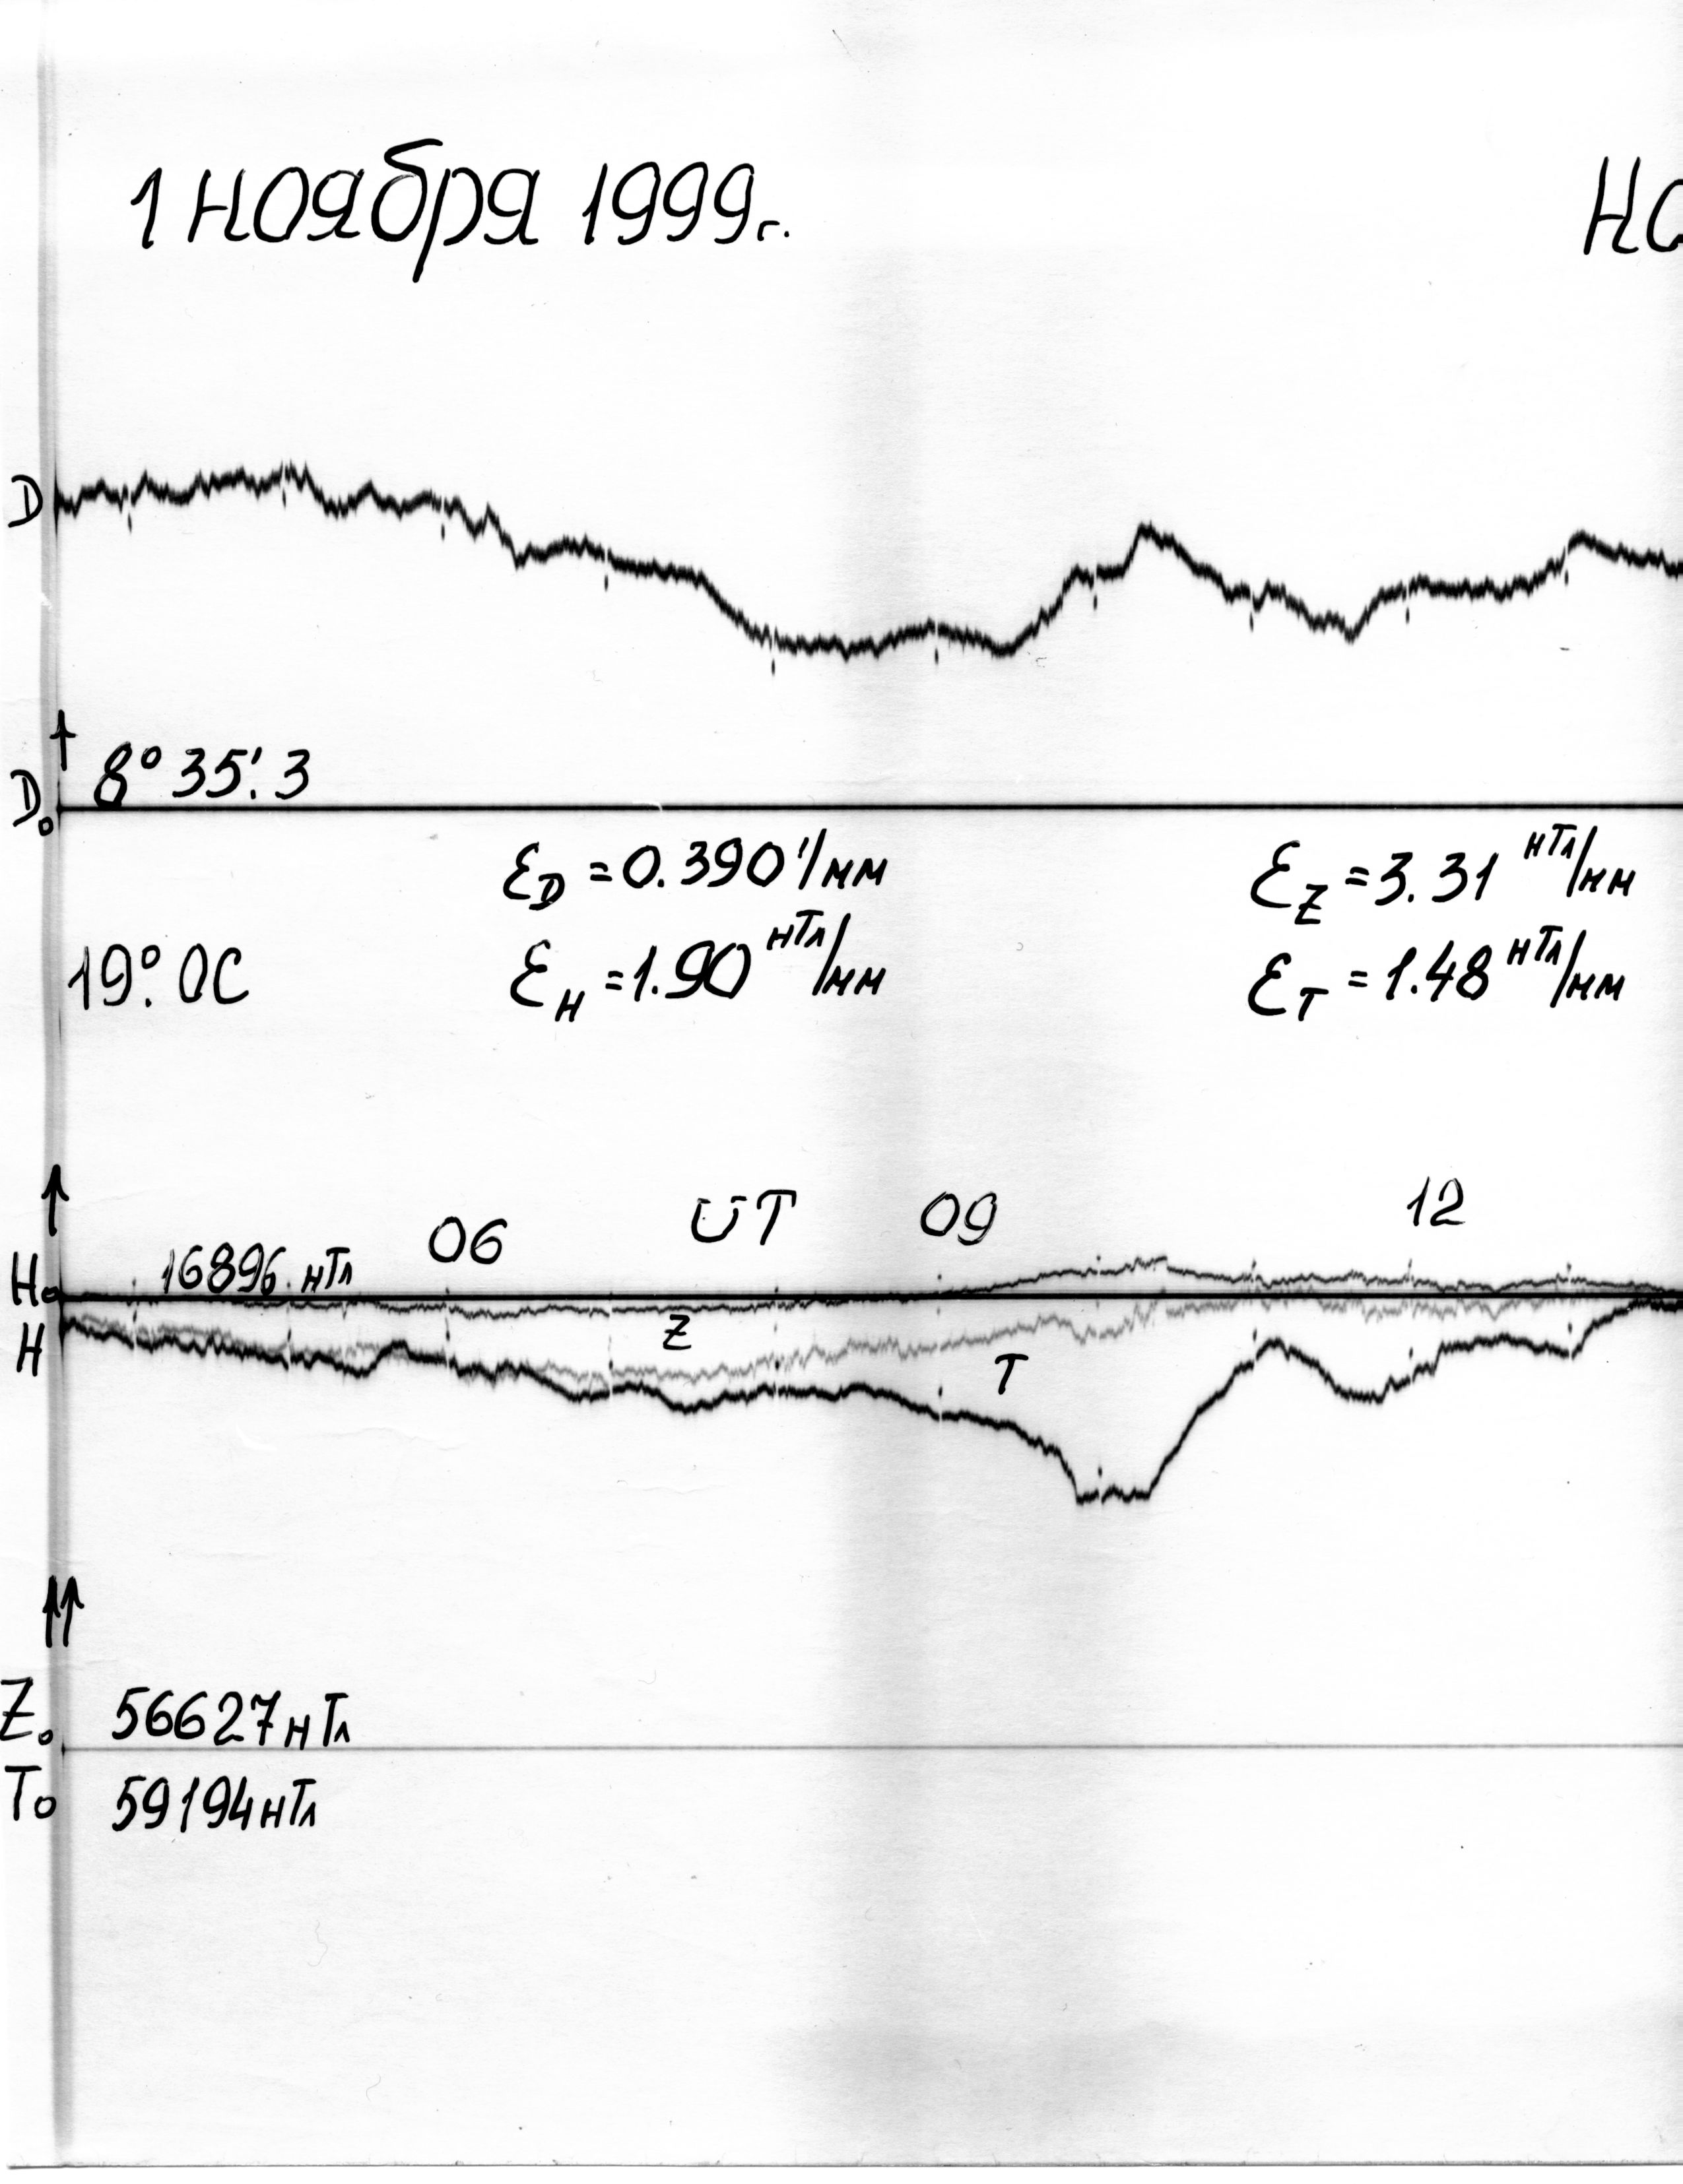 1 ноября 1999г.
НО
D
8° 35'.3
D₀
ε_D = 0.390'/мм
ε_Z = 3.31 нТл/мм
19°.0С
ε_H = 1.90 нТл/мм
ε_T = 1.48 нТл/мм
06 UT 09 12
H₀ 16896 нТл
Z
H
T
Z₀ 56627 нТл
T₀ 59194 нТл